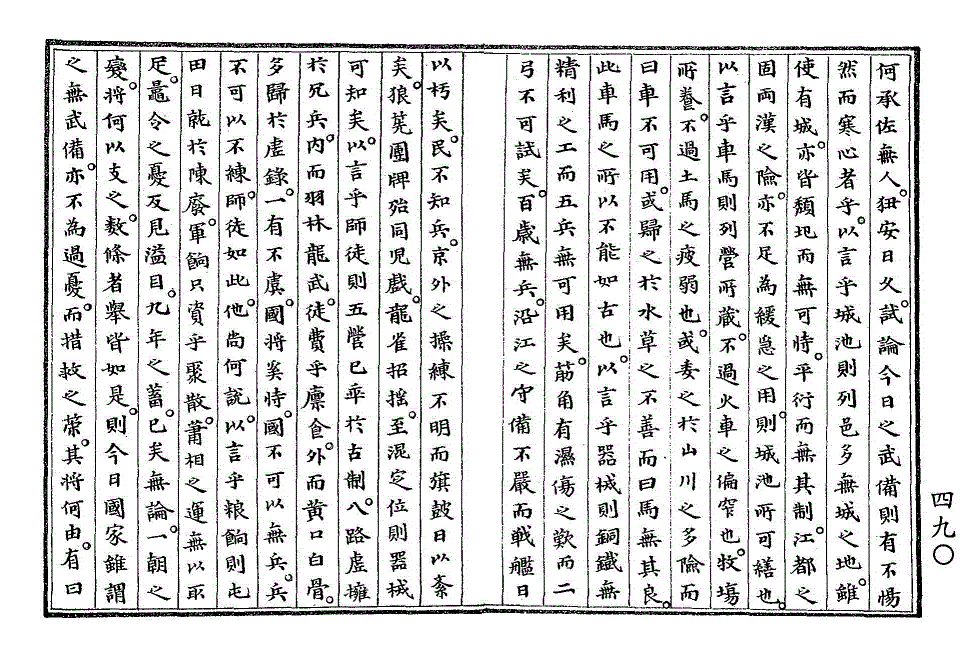 何承佐無人。狃安日久。試論今日之武備則有不惕
然而寒心者乎。以言乎城池則列邑多無城之地。雖
使有城。亦皆頹圮而無可恃。平衍而無其制。江都之
固両漢之險。亦不足為緩急之用。則城池所可繕也。
以言乎車馬則列營所蔵。不過火車之偏窄也。牧場
所養。不過土馬之疲弱也。或委之於山川之多險而
曰車不可用。或歸之於水草之不善而曰馬無其良。
此車馬之所以不能如古也。以言乎器械則銅鐵無
精利之工而五兵無可用矣。筋角有濕傷之歎而二
弓不可試矣。百歲無兵。沿江之守備不嚴而戦艦日
以朽矣。民不知兵。京外之操練不明而旗鼓日以紊
矣。狼筅團牌殆同児戲。龍雀招搖。至混定位則器械
可知矣。以言乎師徒則五營已乖於古制。八路虛擁
於冗兵。内而羽林龍武。徒費乎廪食。外而黄口白骨。
多歸於虛錄。一有不虞。國將奚恃。國不可以無兵。兵
不可以不練。師徒如此。他尚何說。以言乎粮餉則屯
田日就於陳廢。軍餉只資乎聚散。蕭相之運無以取
足。鼂令之憂反見溢目。九年之蓄。已矣無論。一朝之
變。將何以支之。數條者舉皆如是。則今日國家雖謂
之無武備。亦不為過憂。而措救之策。其將何由。有曰
四九〇